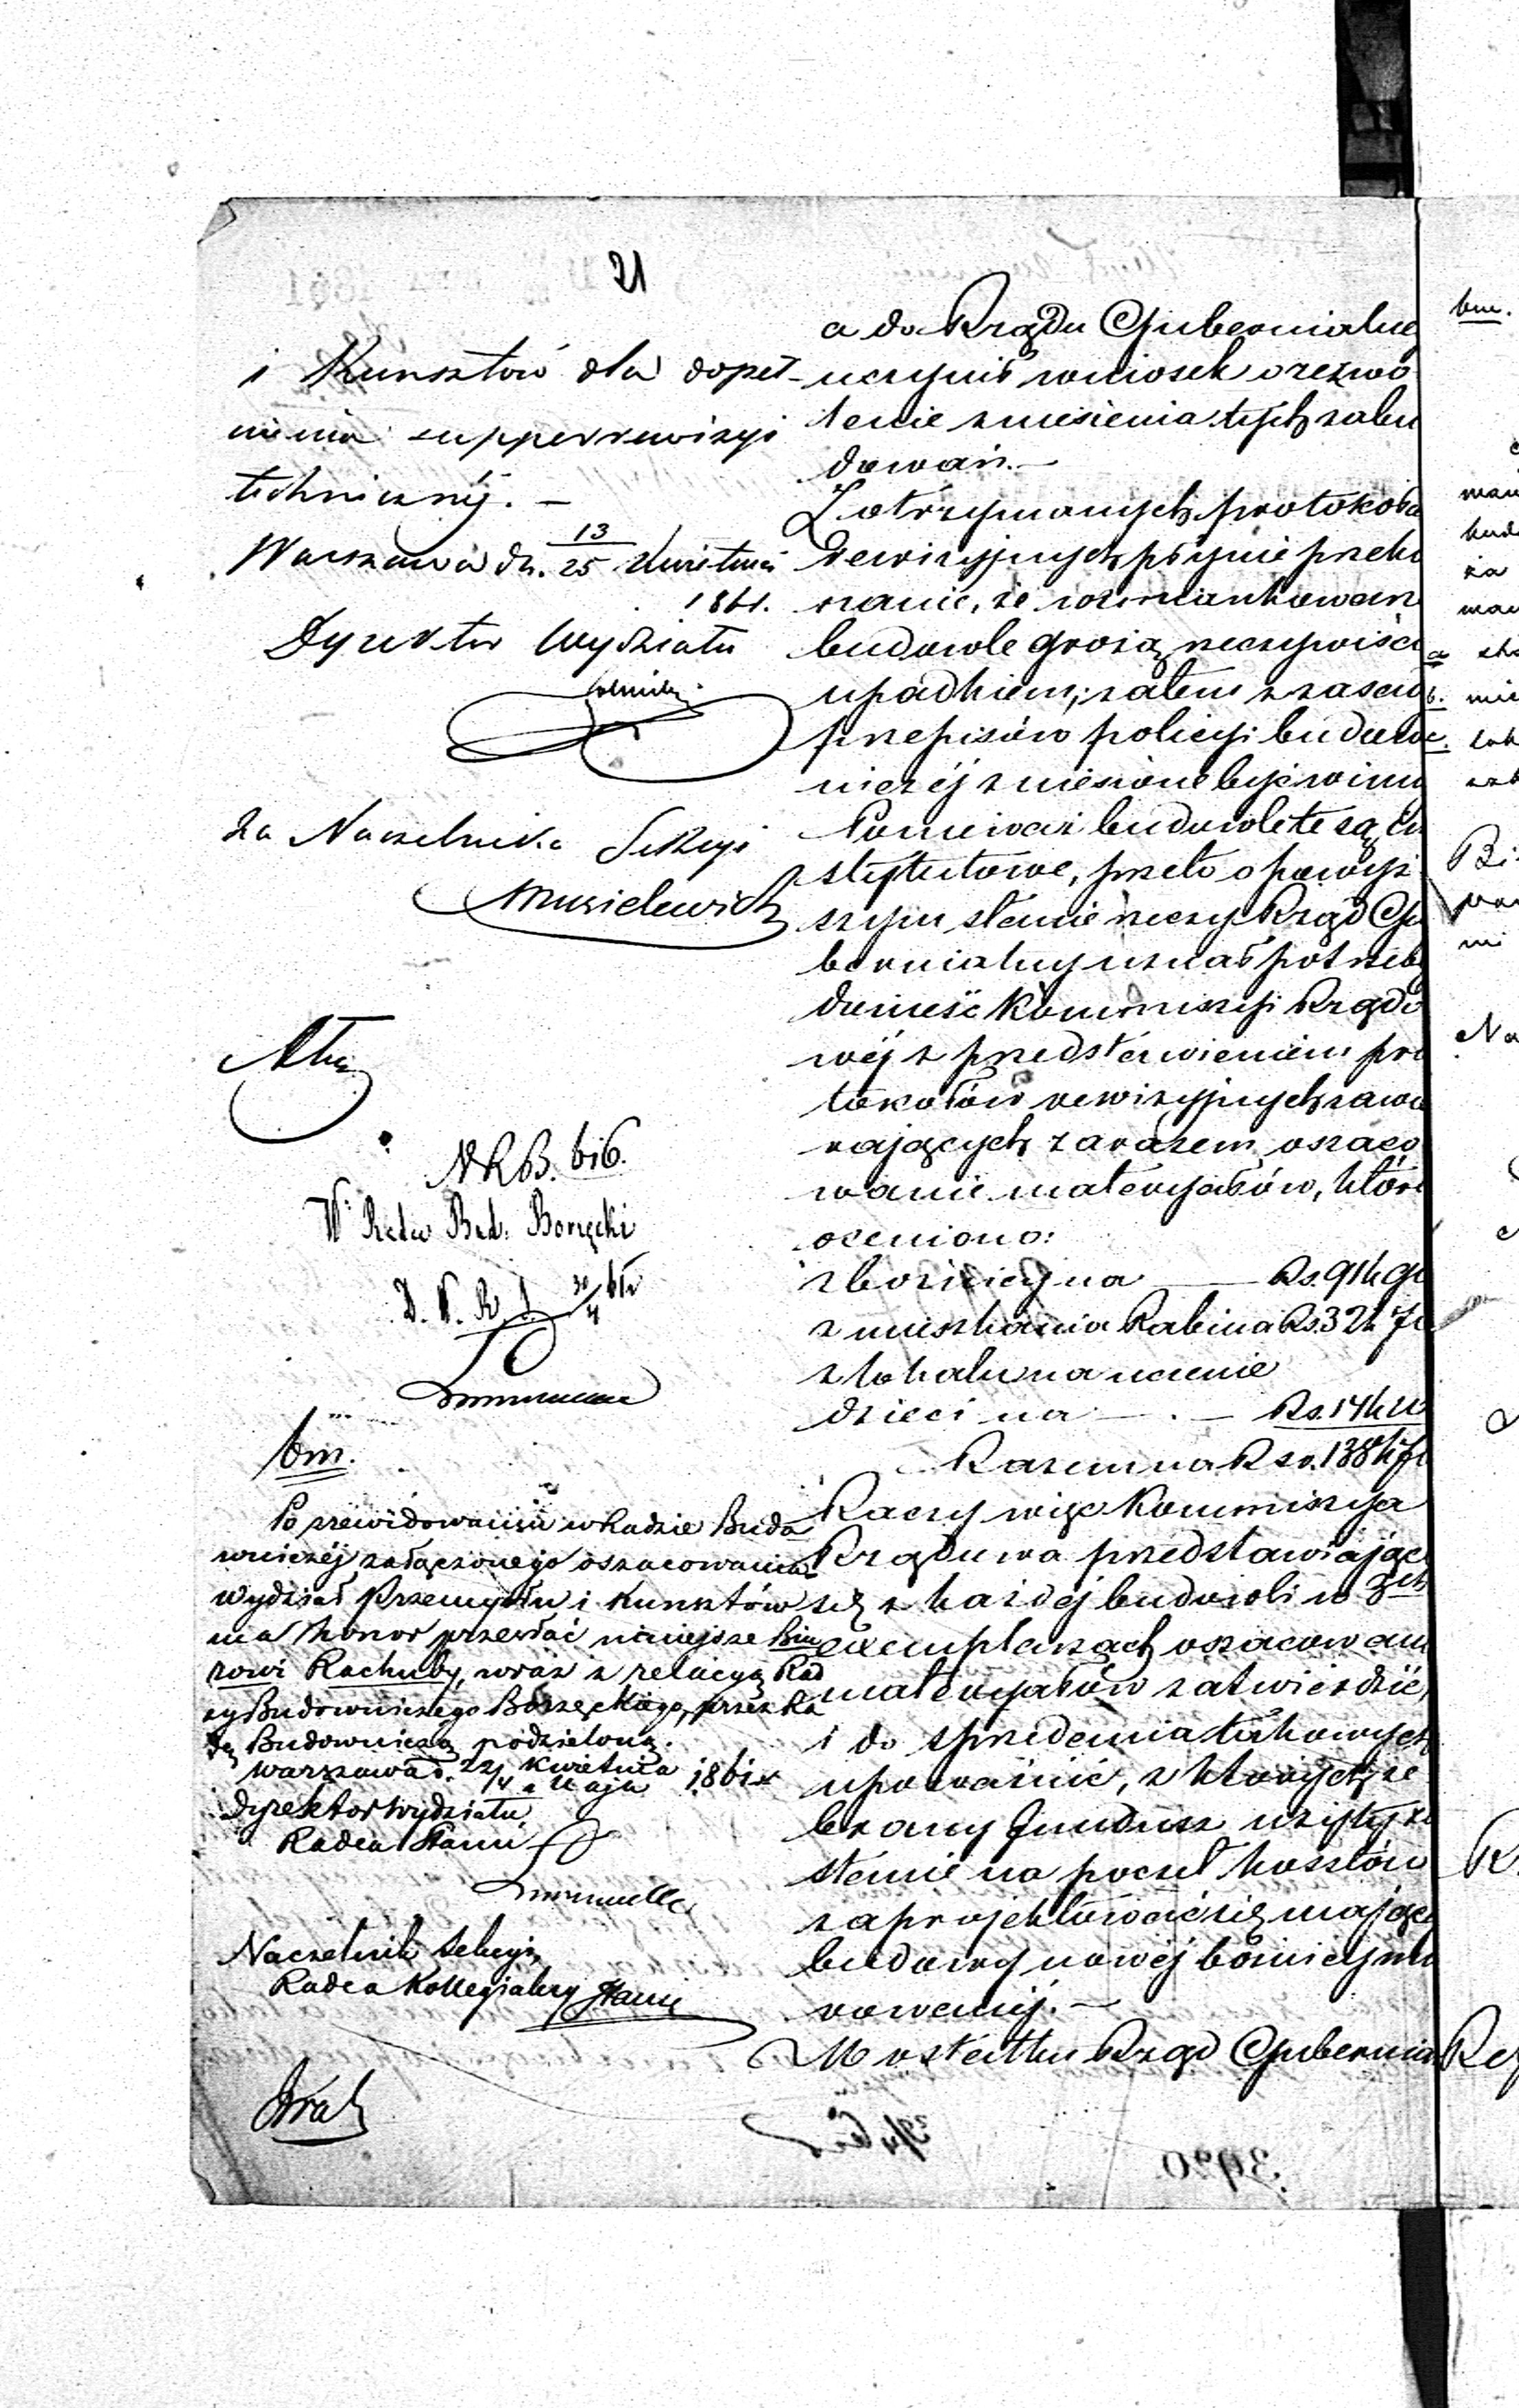 21
i Kunsztów dla dopeł-
nienia supperrewizyi
technicznéj. —
Warszawa dn. 13/25 Kwietnia
1861.
Dyrektor Wydziału
Za Naczelnika Sekcyi
NRB. 616.
W. Radca Bud. Borzęcki
D. W. R. 30/4 61r
bm.
Po zrewidowaniu w Radzie Budo
wniczéj załączonego oszacowania
Wydział Przemysłu i Kunsztów
ma honor przesłać niniejsze Biu
rowi Rachuby, wraz z relacyą Rad
cy Budowniczego Borzęckiego, przez Ra
dę Budowniczą podzieloną.
Warszawa d. 22 Kwietnia / 4 Maja 1861 r
Dyrektor Wydziału
Radca Stanu
Naczelnik Sekcyi,
Radca Kollegialny
a do Rządu Gubernialne
uczynił wniosek o rezwo
lenie zniesienia tych zabu
dowań. —
Z otrzymanych protokołó
rewizyjnych płynie przeko
nanie, że wzmiankowan
budowle grożą rzeczywiści
upadkiem, zatem z zasad
przepisów policyi budow
niczéj zniesione być winn
Ponieważ budowle te są in
stytutowe, przeto o powyż
szym stanie rzeczy Rząd Gu
bernialny uznał potrzeb
donieść Kommissyi Rządo
wéj z przedstawieniem pro
tokołów rewizyjnych zawie
rających zarazem oszaco
wanie materyałów, któr
oceniono:
z bożnicy na — Rs. 91 k 90
z mieszkania Rabina Rs. 32 k 7
z lokalu na uczenie
dzieci na — . — Rs. 14 k
Razem na Rsr. 138 k 7
Raczy więc Kommissya
Rządowa przedstawiając
się z każdéj budowli w 3ch
exemplarzach oszacowani
materyałów zatwierdzić,
i do sprzedania takowych
upoważnić, z których ze
brany fundusz użyty zo
stanie na poczet kosztów
zaprojektować się mając
budowy nowéj bożnicy mu
rowanéj. —
W ostatku Rząd Gubernia